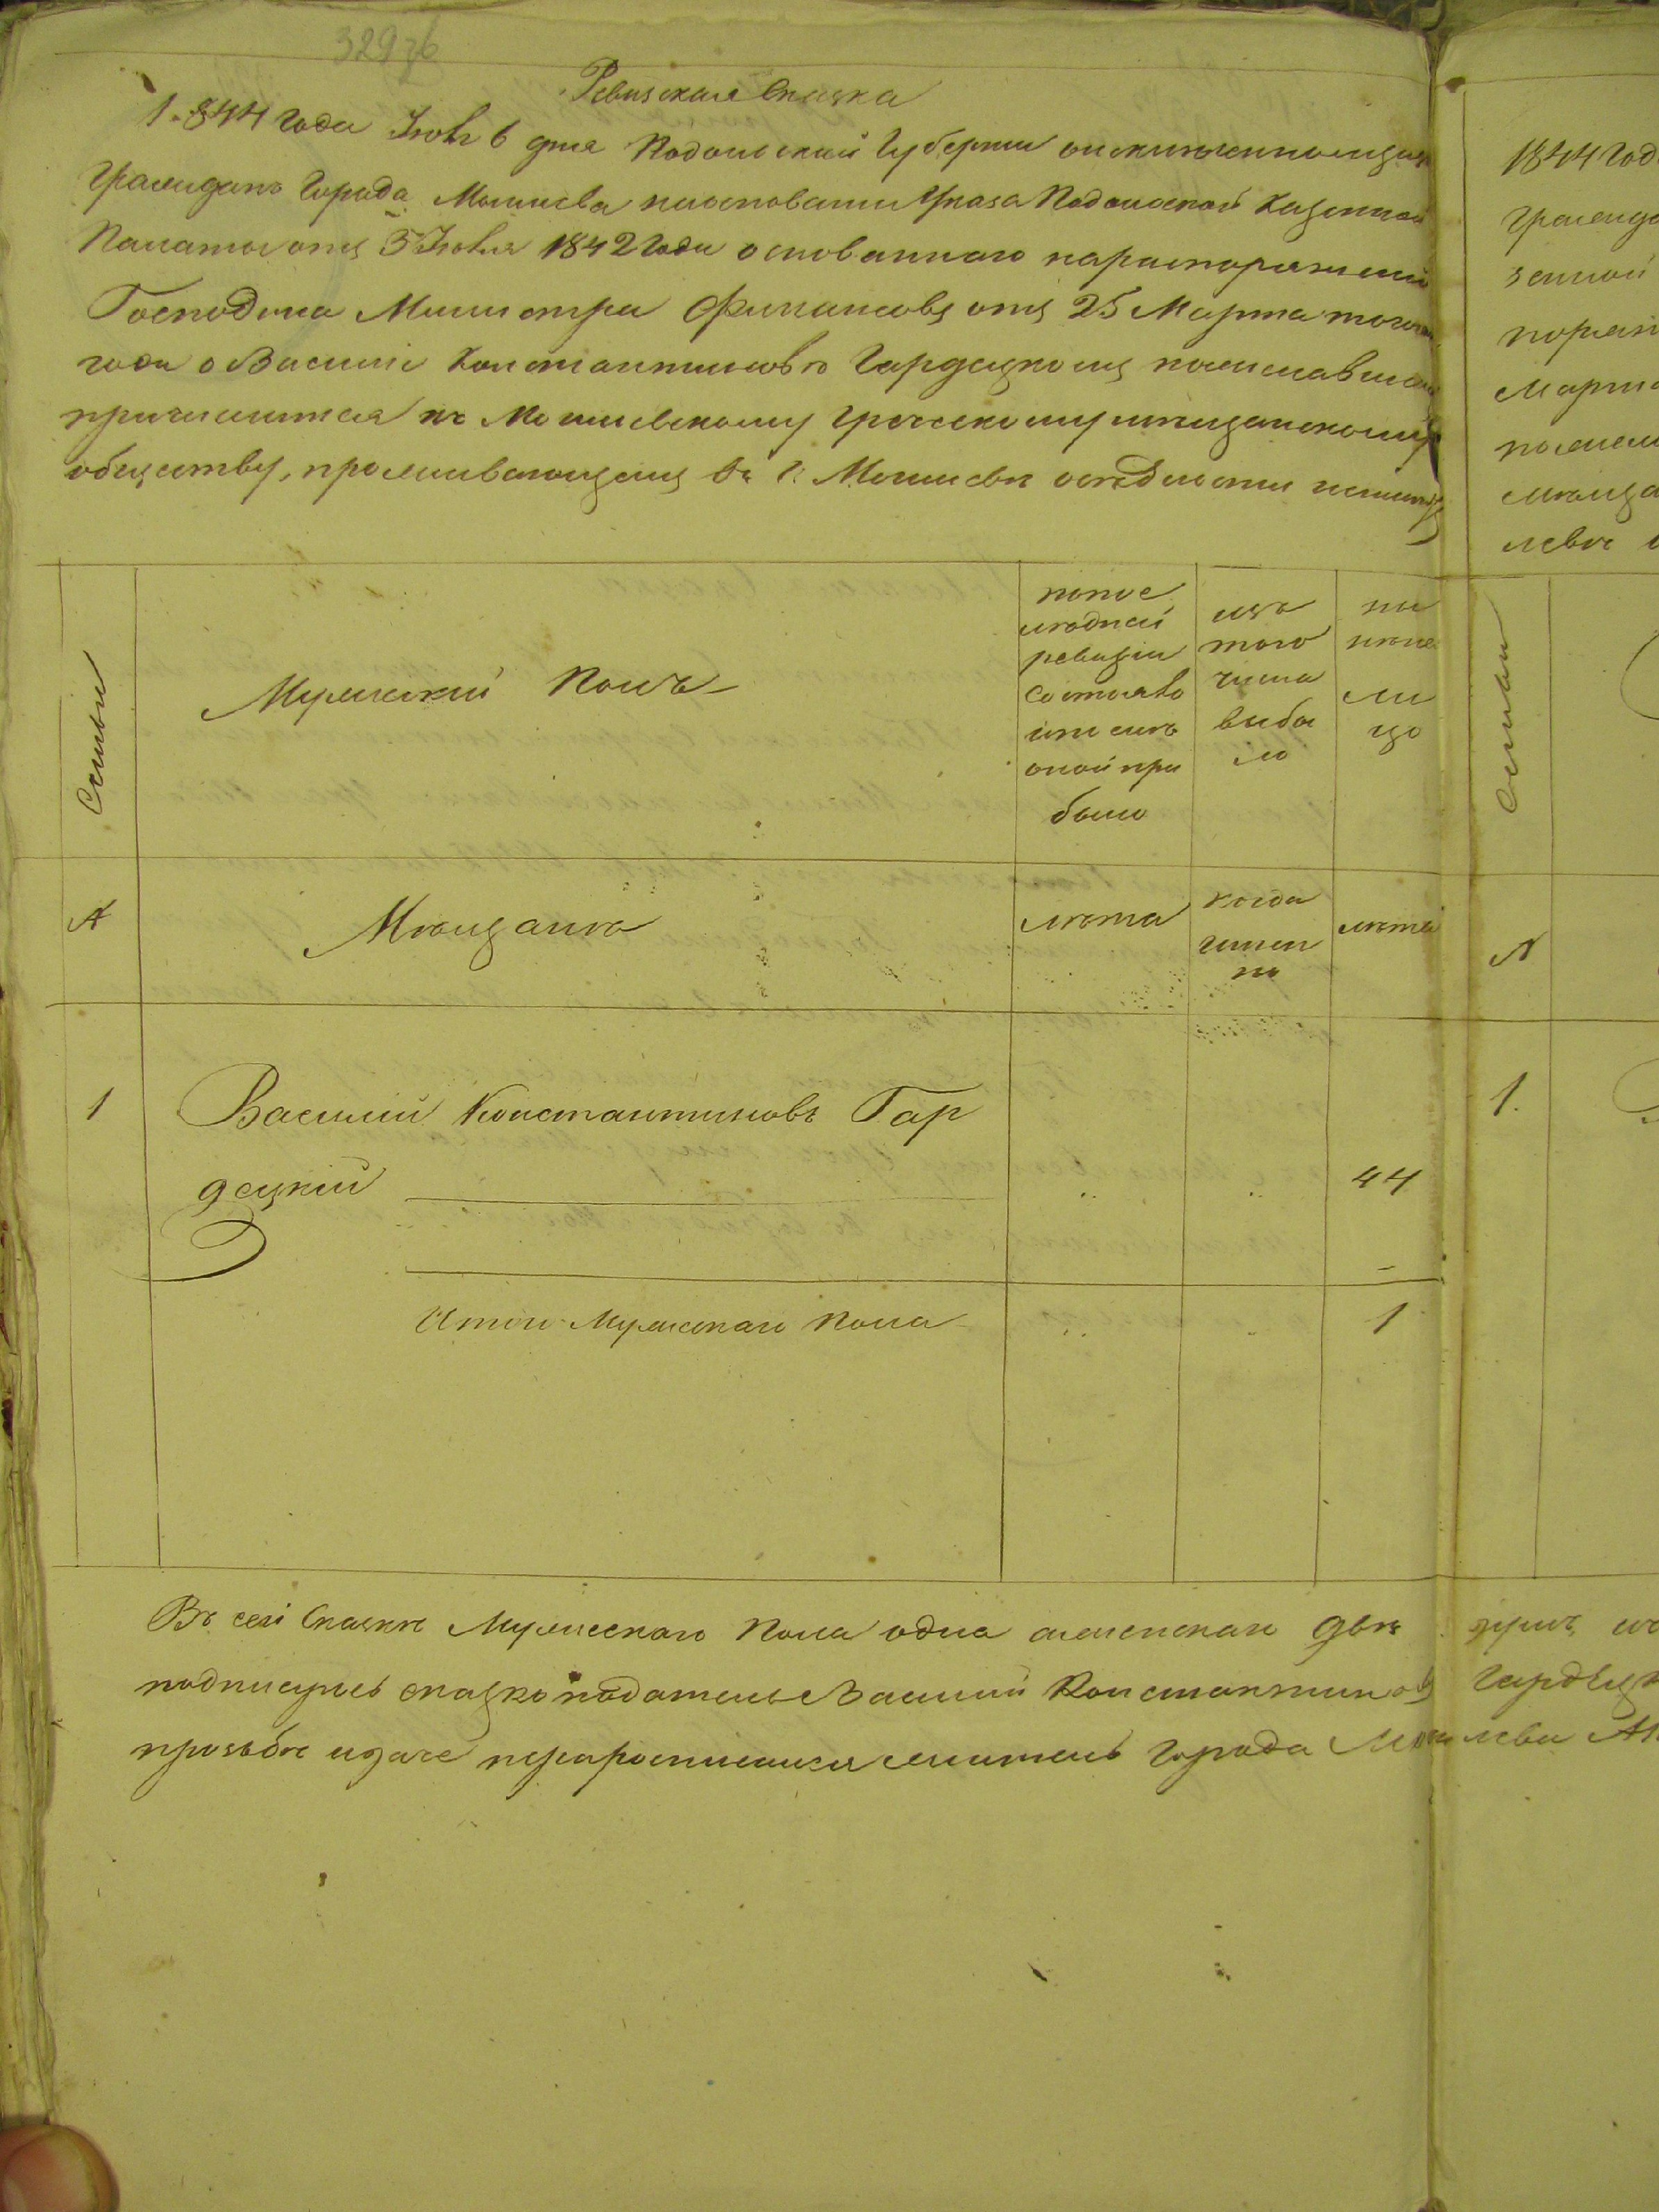 329 76
Ревизская Сказка
1844 года Июня 6 дня Подольской Губернии
Граждан Города Могилева на основании Указа Подольской Казенной
Палаты отъ 5 Июня 1842 года основанного на распоряжении
Господина Министра Финансовъ отъ 25 Марта того
года о Василие Константиновѣ Гардецкомъ пожелавшемъ
причислится къ Могилевскому Греческому мещанскому
обществу, проживающемъ въ г. Могилевѣ осѣдлости неимѣ
Семьи
Мужеский Полъ
по по с
лѣдней
ревизіи
состояло
или послѣ
оной при
было
изъ
того
числа
выбы
ло
ны
нѣ на
ли
цо
№
Мѣщанъ
лѣта
когда
имен
но
лѣта
1
Василий Константиновъ Гар
децкій
44
Итого Мужескаго пола
1
Въ сей Сказкѣ Мужескаго пола одна а женскаго двѣ
подписуюсь сказкоподатель Василий Константинов
прозьбѣ житель Города Моги
1844 год
гражда
зенной
поряж
Марта
пожел
мѣща
левѣ
Семьи
№
1.
душъ
Гардѣцк
лева